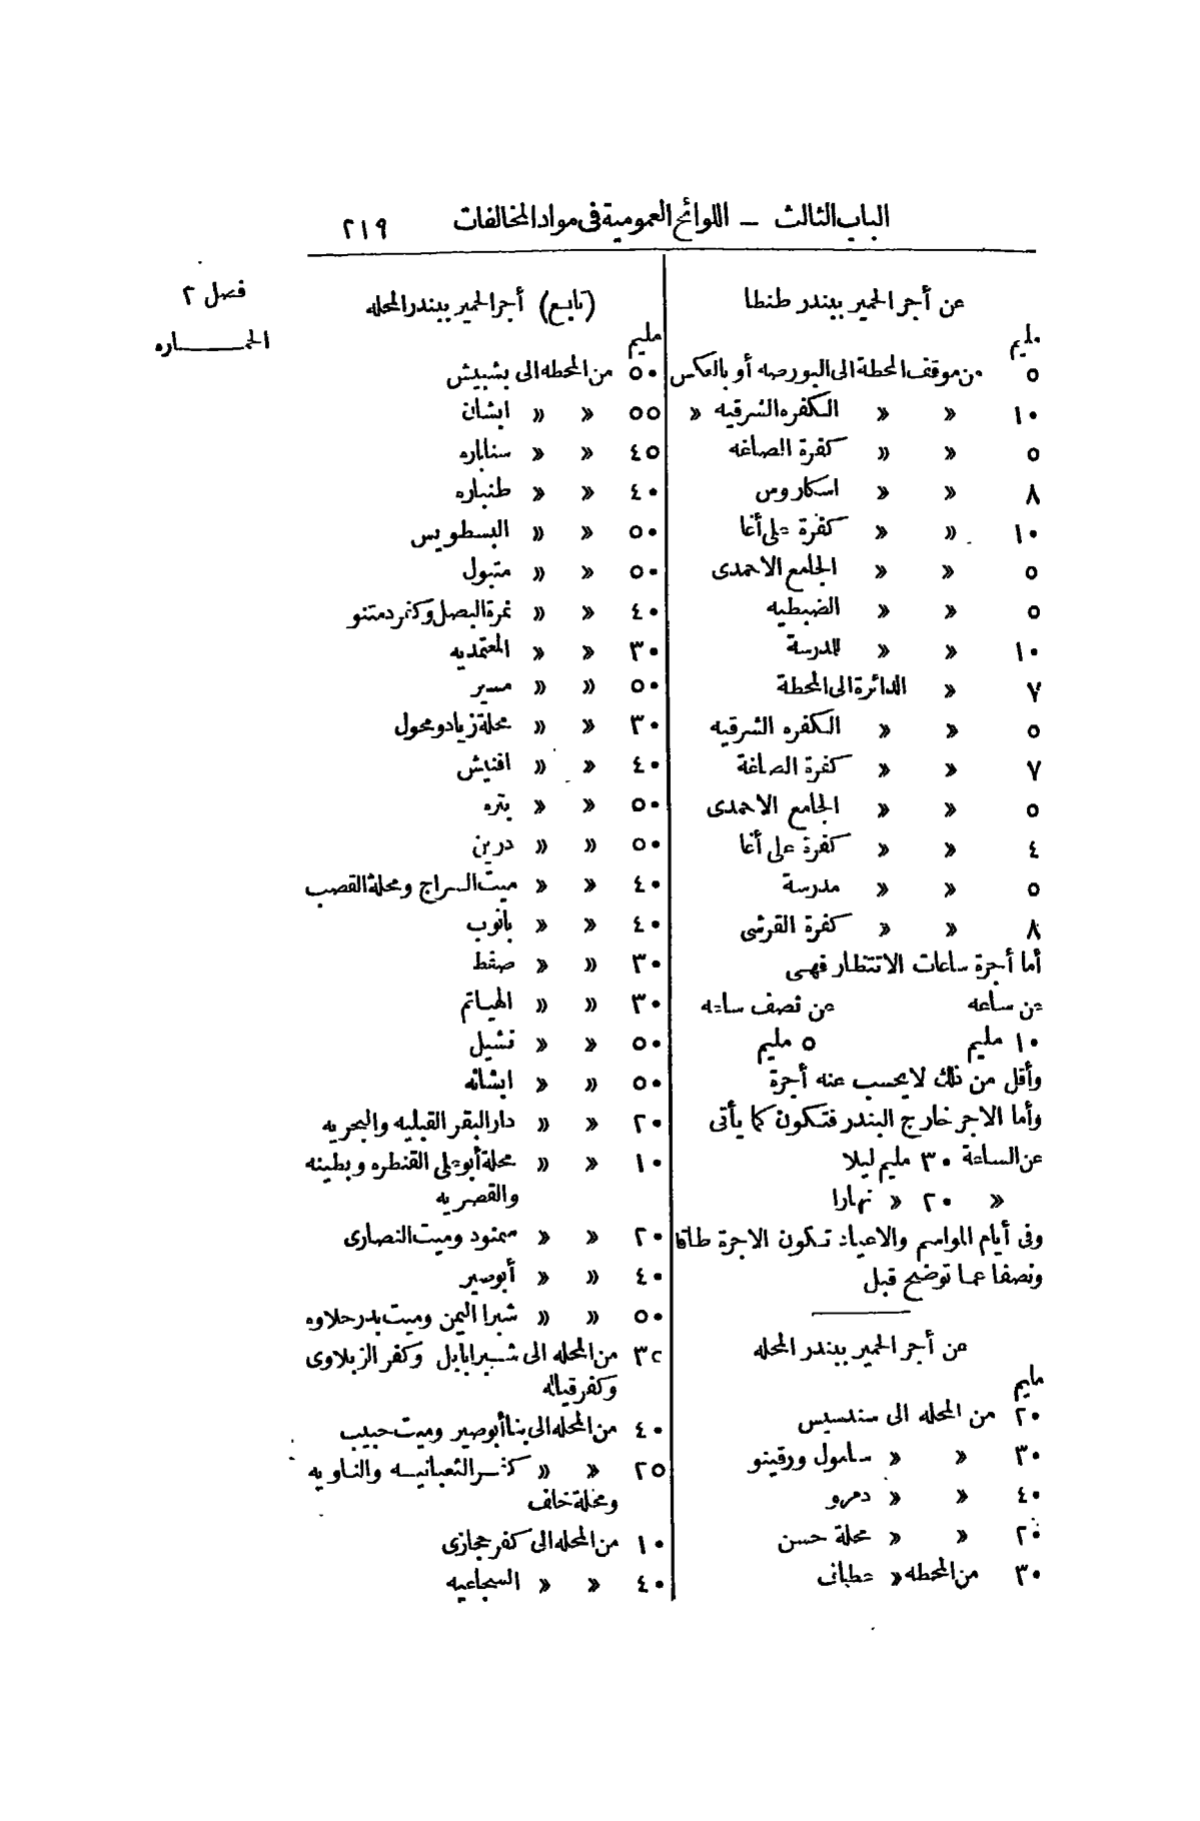 الباب الثالث — اللوائح العمومية فى مواد المخالفات ٢١٩
فصل ٢
الحماره
عن أجر الحمير ببندر طنطا
مليم
٥ من موقف المحطة الى البورصه أو بالعكس
١٠ » » الكفره الشرقيه »
٥ » » كفرة الصاغه
٨ » » اسكاروس
١٠ » » كفرة على أغا
٥ » » الجامع الاحمدى
٥ » » الضبطيه
١٠ » » المدرسة
٧ » الدائرة الى المحطة
٥ » » الكفره الشرقيه
٧ » » كفرة الصاغة
٥ » » الجامع الاحمدى
٤ » » كفرة على أغا
٥ » » مدرسة
٨ » » كفرة القرشى
أما أجرة ساعات الانتظار فهى
عن ساعه عن نصف ساعه
١٠ مليم ٥ مليم
وأقل من ذلك لا يحسب عنه أجرة
وأما الاجر خارج البندر فتكون كما يأتى
عن الساعة ٣٠ مليم ليلا
» ٢٠ » نهارا
وفى أيام المواسم والاعياد تكون الاجرة طاقا
ونصفا عما توضح قبل
عن أجر الحمير ببندر المحله
مليم
٢٠ من المحله الى سندسيس
٣٠ » » سامول ورقينو
٤٠ » » دمرو
٢٠ » » محلة حسن
٣٠ من المحطه » عطاف
(تابع) أجر الحمير ببندر المحله
مليم
٥٠ من المحطه الى بشبيش
٥٥ » » ابشان
٤٥ » » سناباره
٤٠ » » طنباره
٥٠ » » البسطويس
٥٠ » » متبول
٤٠ » » نمرة البصل وكفر دمتنو
٣٠ » » المعتمديه
٥٠ » » مسير
٣٠ » » محلة زياد ومحول
٤٠ » » افنيش
٥٠ » » بتره
٥٠ » » درين
٤٠ » » ميت السراج ومحلة القصب
٤٠ » » بانوب
٣٠ » » صفط
٣٠ » » الهياتم
٥٠ » » نشيل
٥٠ » » ابشانه
٢٠ » » دار البقر القبليه والبحريه
١٠ » » محلة أبو على القنطره وبطينه
والقصريه
٢٠ » » سمنود وميت النصارى
٤٠ » » أبوصير
٥٠ » » شبرا اليمن وميت بدر حلاوه
٣٢ من المحله الى شبرا بابل وكفر الزبلاوى
وكفر قياله
٤٠ من المحله الى بنا أبوصير وميت حبيب
٢٥ » » كفر الثعبانيه والناويه
ومحلة خلف
١٠ من المحله الى كفر حجازى
٤٠ » » السجاعيه